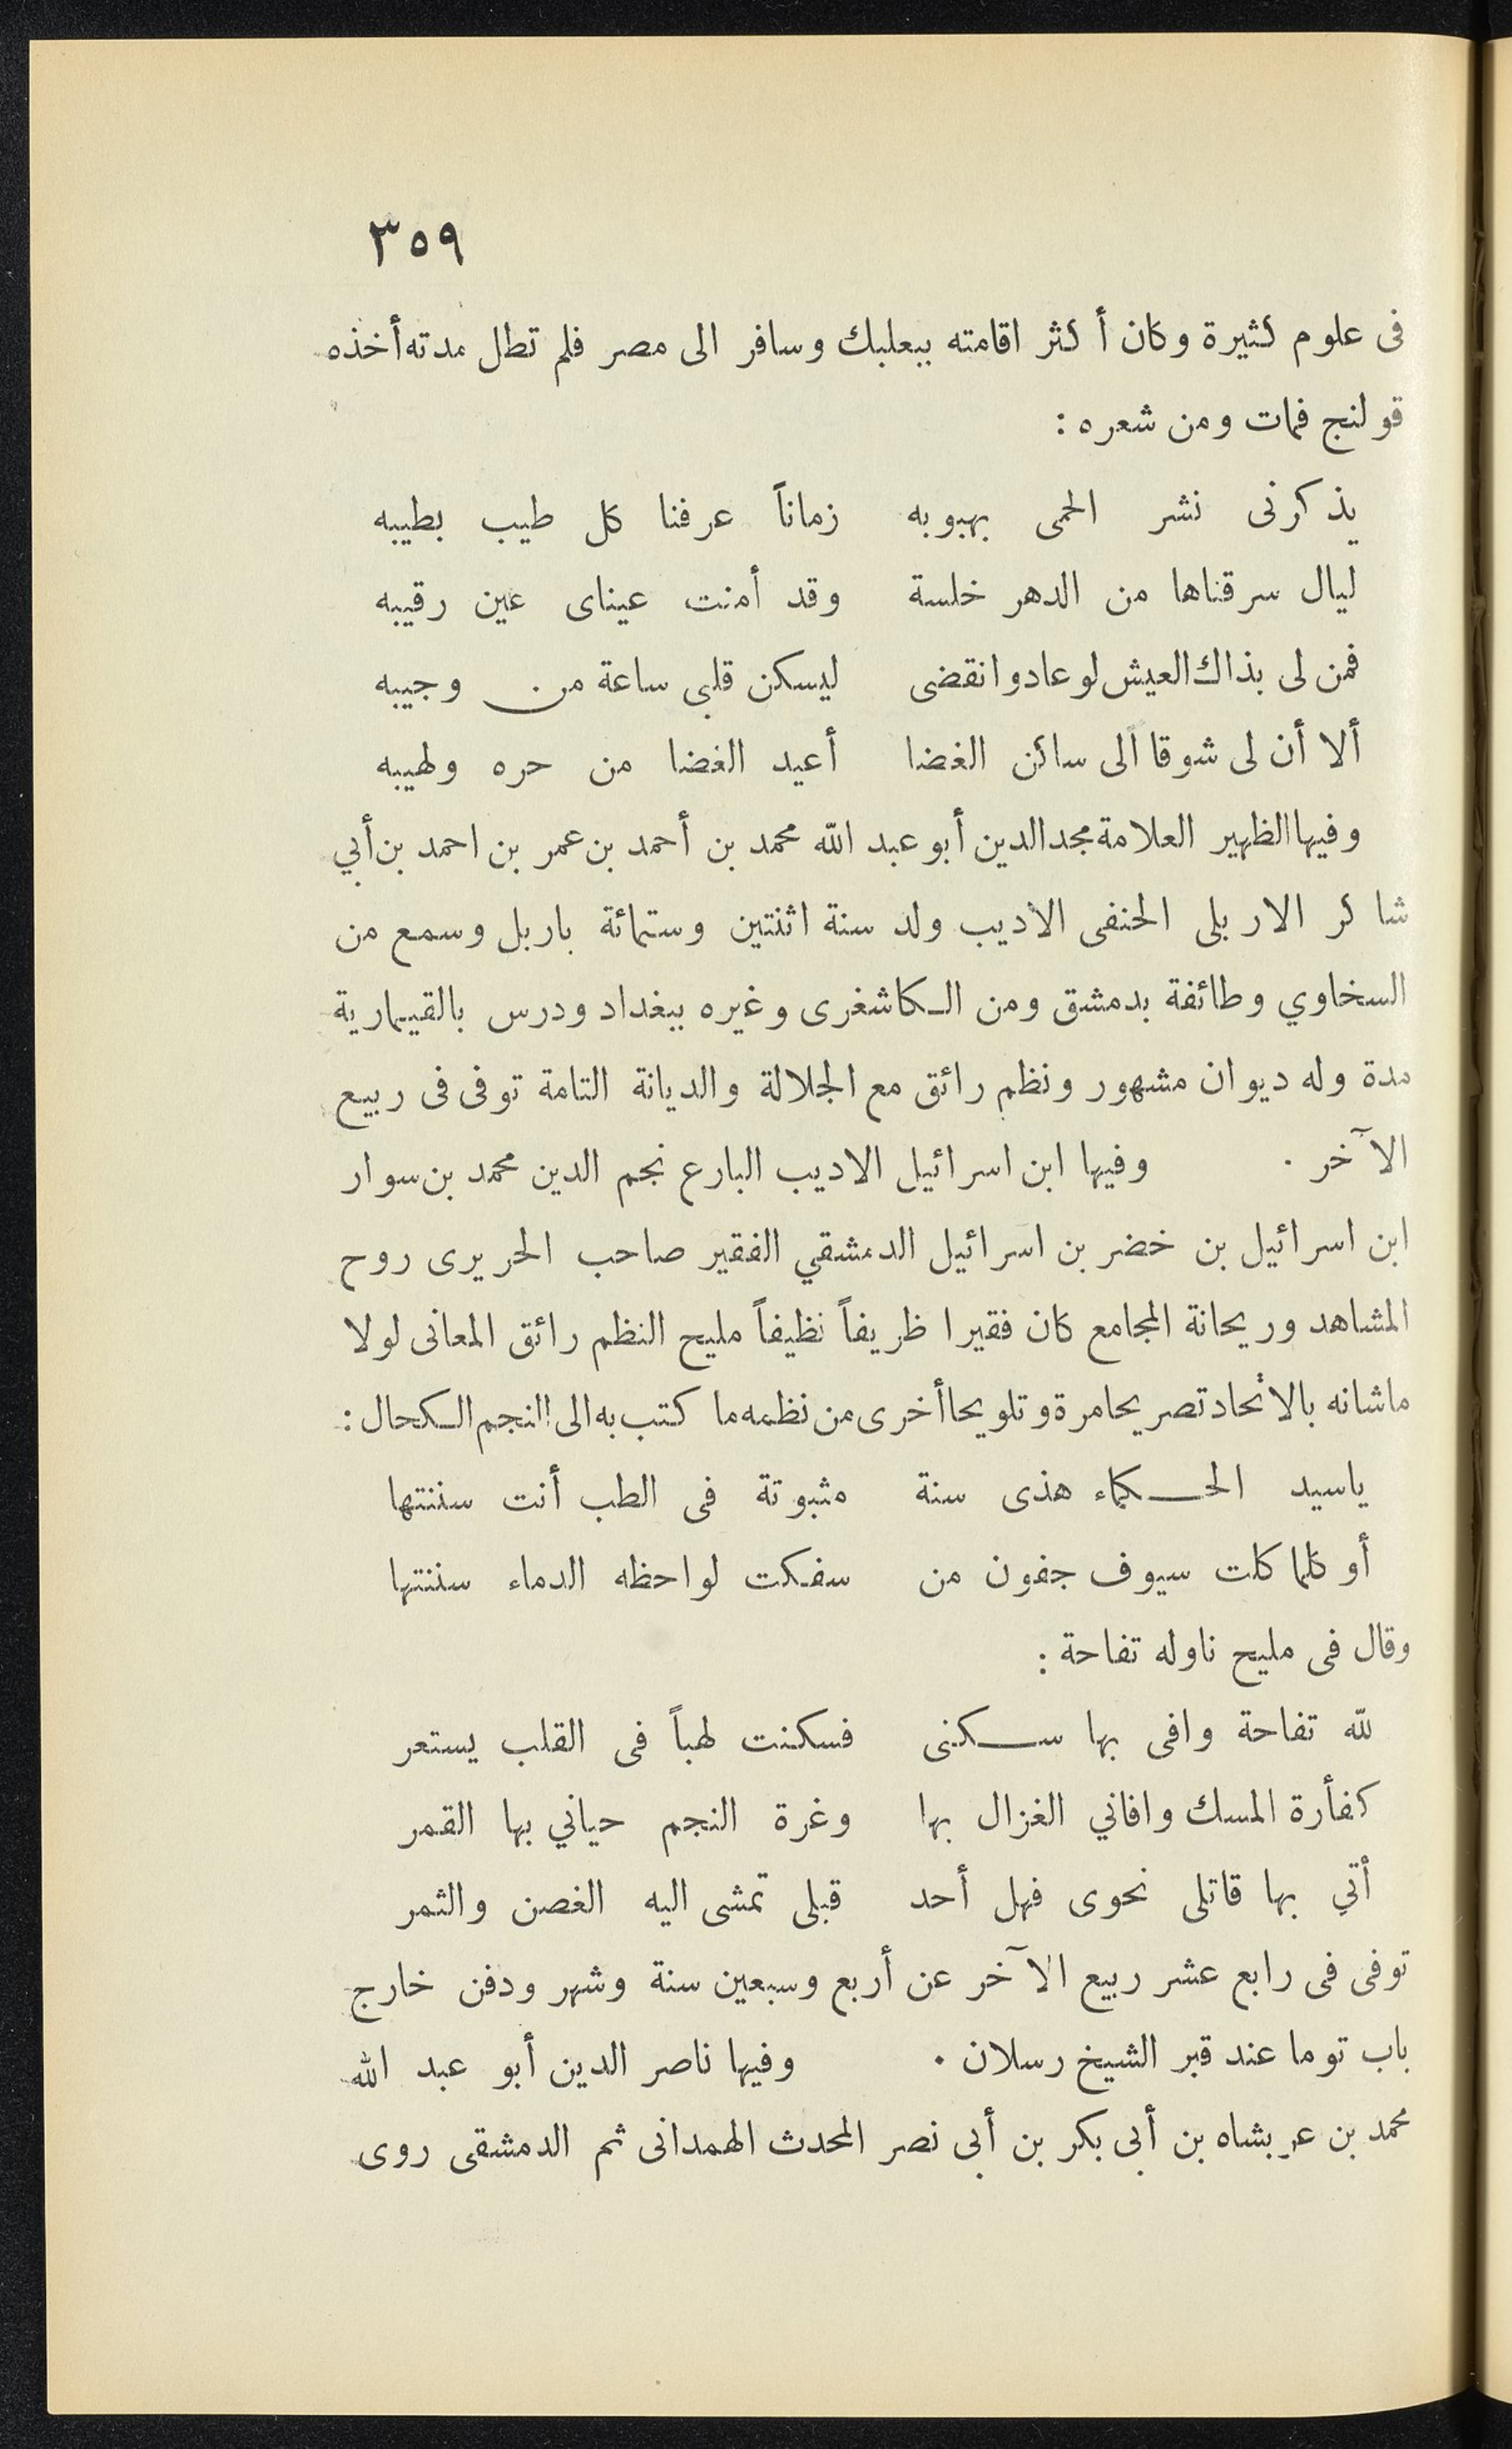 ٣٥٩
فى علوم كثيرة وكان أكثر اقامته ببعلبك وسافر الى مصر فلم تطل مدته أخذه
قولنج فمات ومن شعره :
يذكرنى نشر الحمى بهبوبه زماناً عرفنا كل طيب بطيبه
ليال سرقناها من الدهر خلسة وقد أمنت عيناى عين رقيبه
فمن لى بذاك العيش لو عاد وانقضى ليسكن قلبى ساعة من وجيبه
ألا أن لى شوقا الى ساكن الغضا أعيد الغضا من حره ولهيبه
وفيها الظهير العلامة مجد الدين أبو عبد الله محمد بن أحمد بن عمر بن احمد بن أبي
شاكر الاربلى الحنفى الاديب ولد سنة اثنتين وستمائة باربل وسمع من
السخاوي وطائفة بدمشق ومن الكاشغرى وغيره ببغداد ودرس بالقيمارية
مدة وله ديوان مشهور ونظم رائق مع الجلالة والديانة التامة توفى فى ربيع
الآخر . وفيها ابن اسرائيل الاديب البارع نجم الدين محمد بن سوار
ابن اسرائيل بن خضر بن اسرائيل الدمشقي الفقير صاحب الحريرى روح
المشاهد وريحانة المجامع كان فقيرا ظريفاً نظيفاً مليح النظم رائق المعانى لولا
ماشانه بالاتحاد تصريحا مرة وتلويحا أخرى من نظمه ما كتب به الى النجم الكحال :
ياسيد الحكماء هذى سنة مثبوتة فى الطب أنت سننتها
أو كلما كلت سيوف جفون من سفكت لواحظه الدماء سننتها
وقال فى مليح ناوله تفاحة :
لله تفاحة وافى بها سكنى فسكنت لهباً فى القلب يستعر
كفأرة المسك وافاني الغزال بها وغرة النجم حياني بها القمر
أتي بها قاتلى نحوى فهل أحد قبلى تمشى اليه الغصن والثمر
توفى فى رابع عشر ربيع الآخر عن أربع وسبعين سنة وشهر ودفن خارج
باب توما عند قبر الشيخ رسلان . وفيها ناصر الدين أبو عبد الله
محمد بن عربشاه بن أبى بكر بن أبى نصر المحدث الهمدانى ثم الدمشقى روى